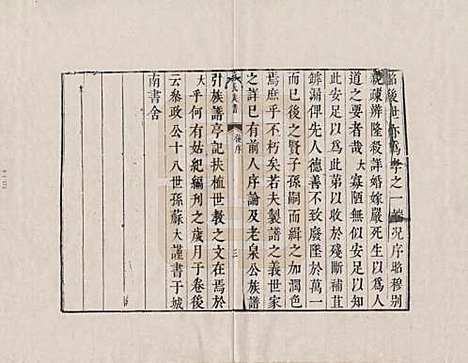 詒後世亦爲孝之一端況序昭穆别
親疎辨隆殺詳婚嫁嚴死生以爲人
道之要者哉大寡陋無似安足以知
此安足以爲此第以收於殘斷補苴
罅漏俾先人德善不致廢墜於萬一
而已後之賢子孫嗣而緝之加潤色
焉庶乎不朽矣若夫製譜之義世家
之詳已有前人序論及老泉公族譜
後序
三
引族譜亭記扶植世教之文在焉於
大乎何有姑紀編刋之歲月于卷後
云參政公十八世孫蘇大謹書于城
南書舍